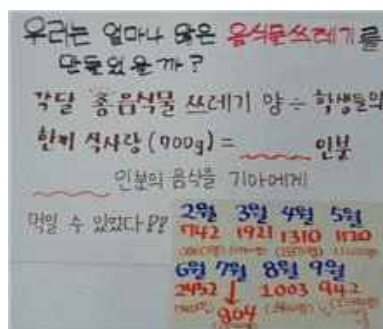 우리는 얼마나 많은 음식물쓰레기를
만들었을까?
각달 총 음식물 쓰레기 양 ÷ 학생들의
한끼 식사량 (700g) = 인분
인분의 음식을 기아에게
먹일 수 있었다!!
2월 3월 4월 5월
742 1921 1310 1120
6월 7월 8월 9월
2432 ↓ 1003 942
804